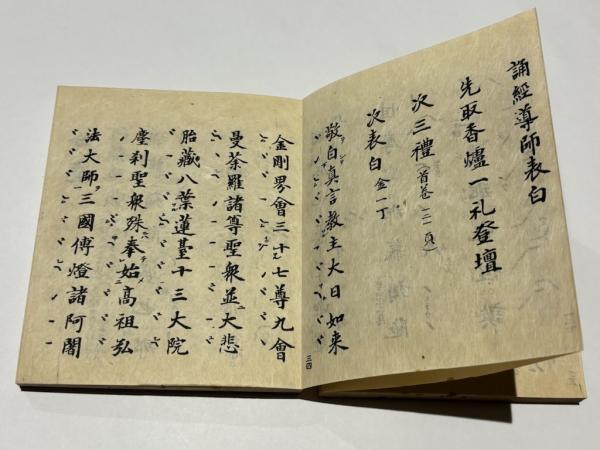 誦經導師表白
先取香爐一礼登壇
次三禮(首卷三一頁)
次表白金一丁
敬白真言教主大日如来
金剛界會三十七尊九會
曼荼羅諸尊聖衆並大悲
胎藏八葉蓮臺十三大院
塵刹聖衆殊奉始高祖弘
法大師三國傳燈諸阿闍
三四